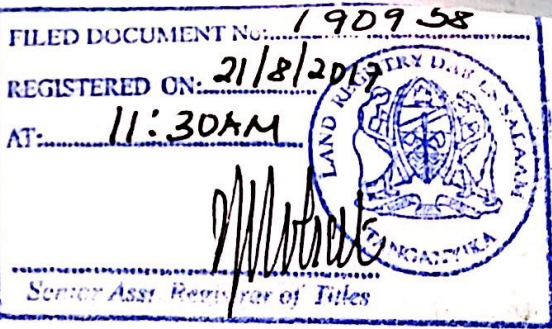 FILED DOCUMENT No:.....190958
REGISTERED ON:.....21/8/2017
AT:.....11:30AM
LAND REGISTRY DAR ES SALAAM
TANGANYIKA
Senior Asst. Registrar of Titles